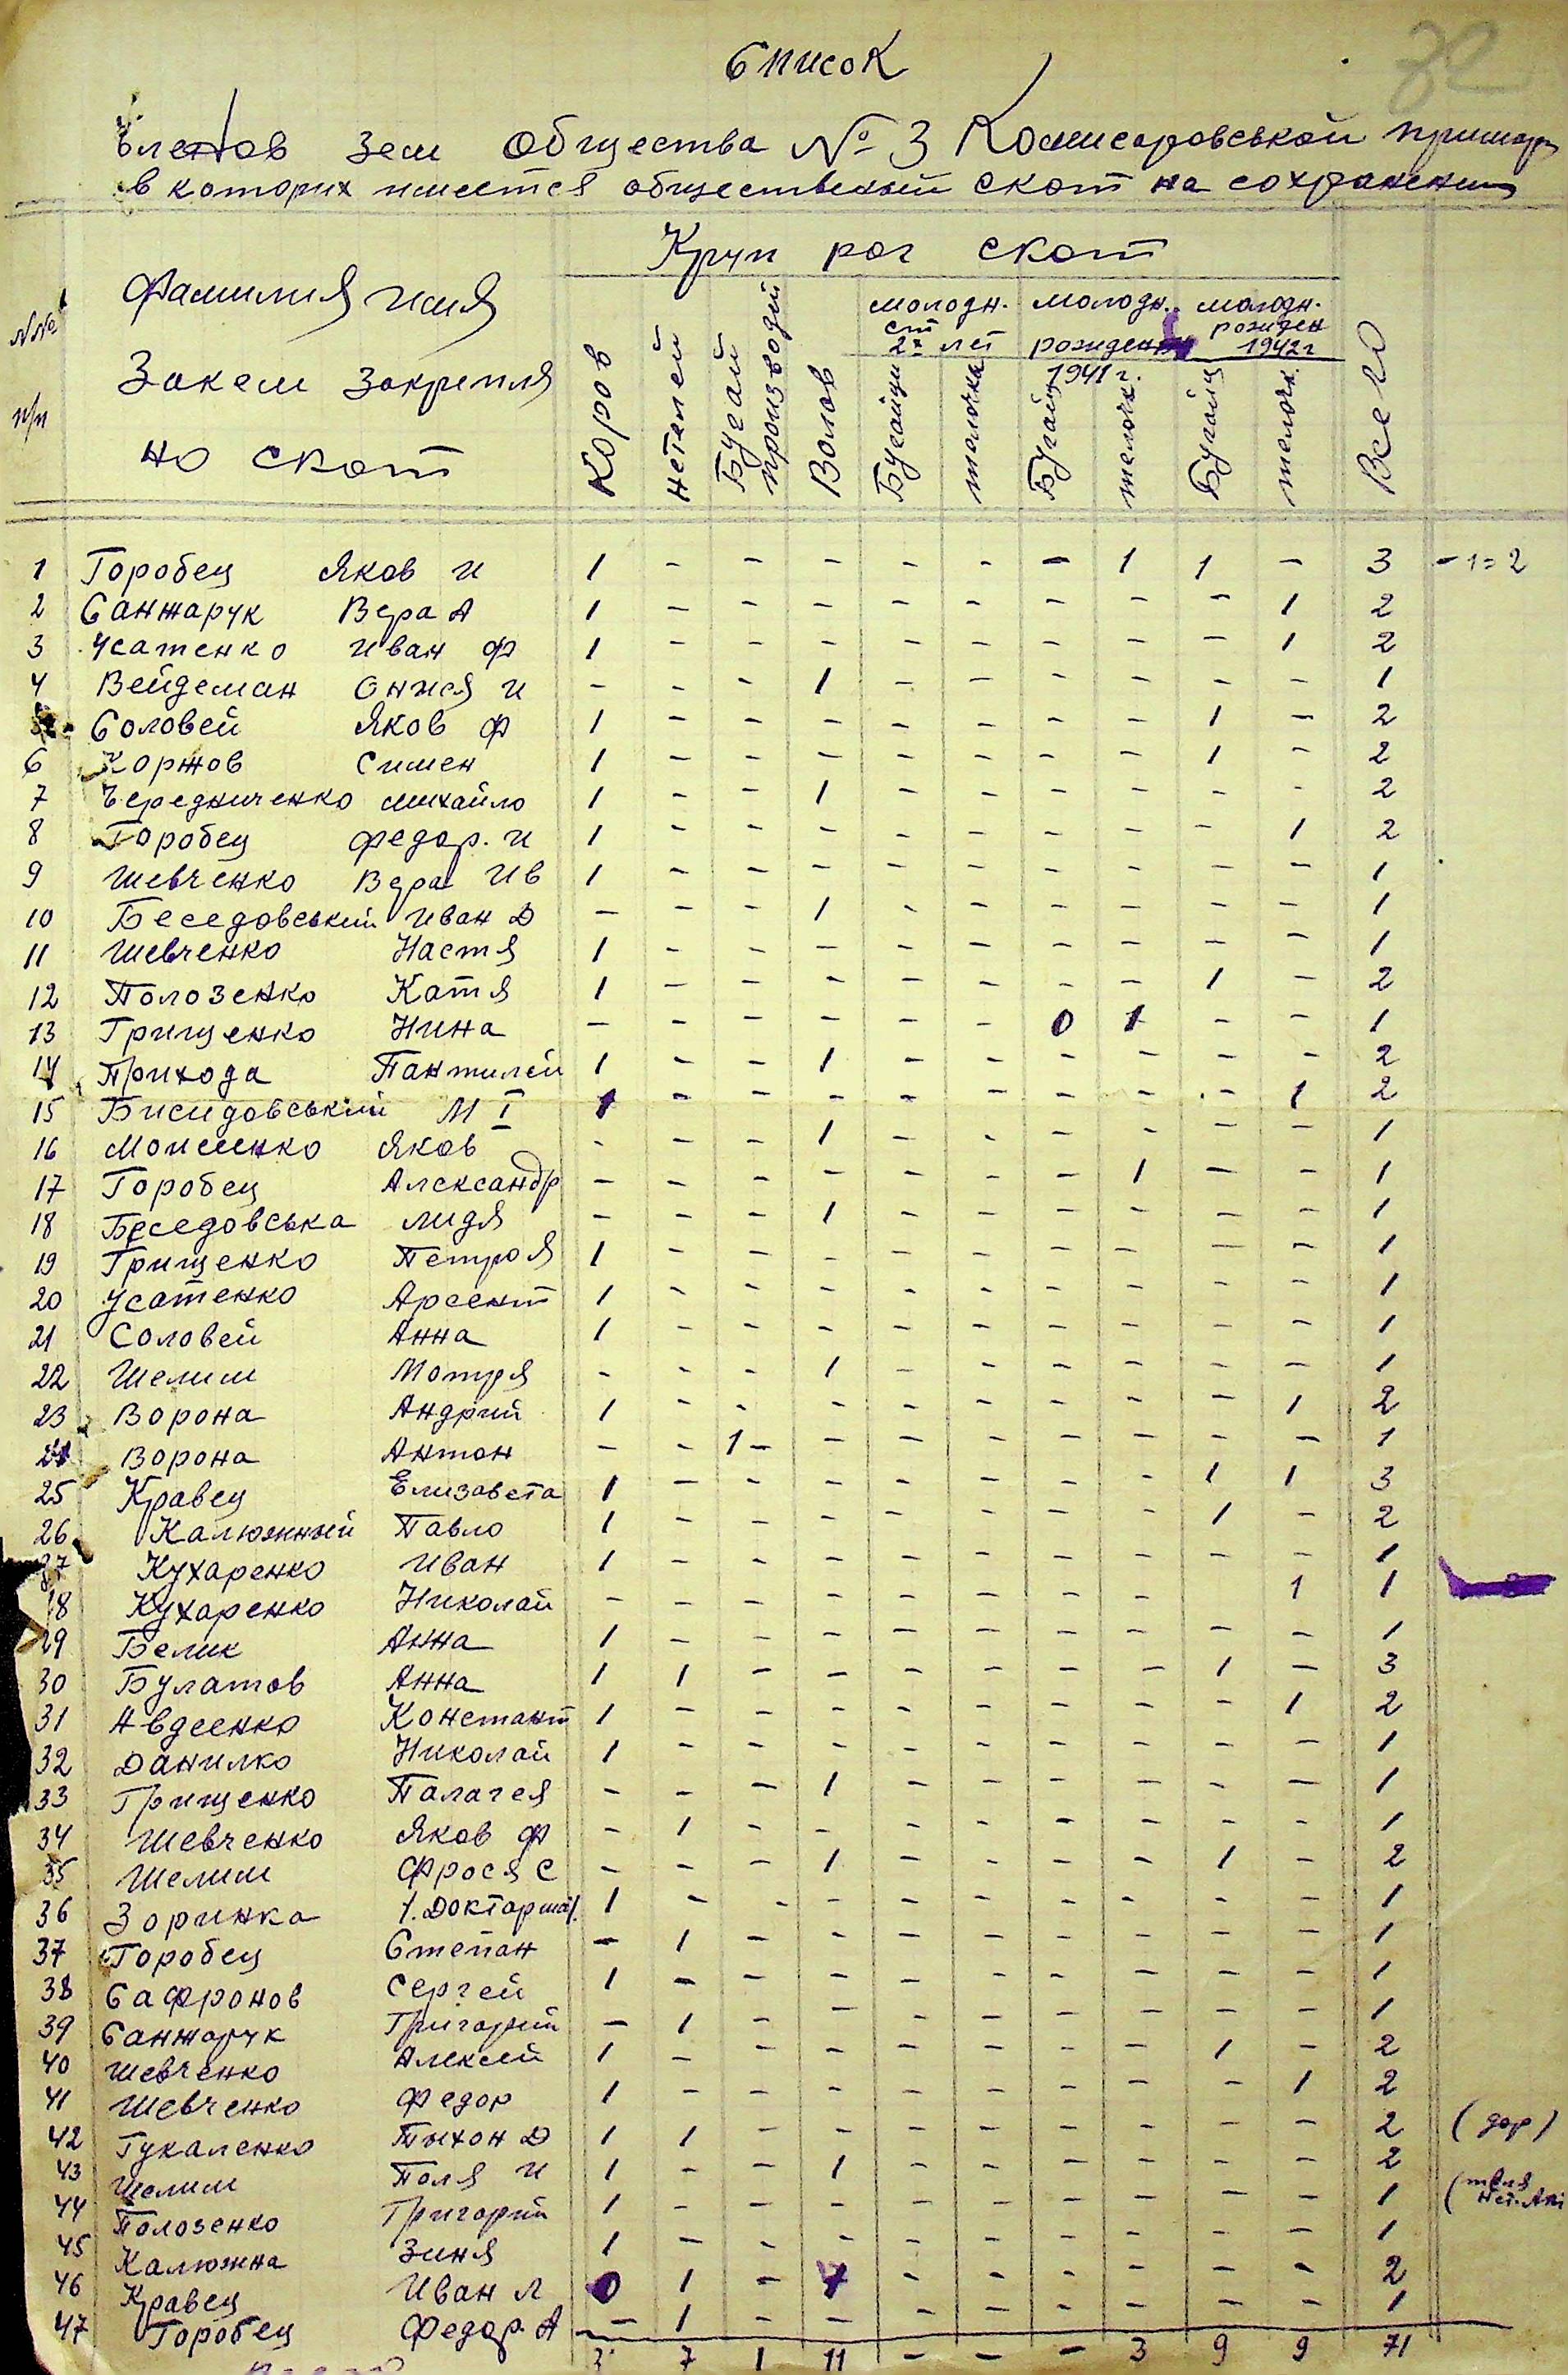 Список
Членов Зем Общества № 3 Комисаровськой примар
в которих имеется общественый скот на сохранении
№№ п/п
Фамилия имя
За кем закрепля
но скот
Круп рог скот
Коров
нетелей
Бугай производит
Волов
молодн. ст 2х лет
Бугайци
телочка
молодн. рожден 1941 г.
Бугайц
телочк
молодн. рожден 1942 г
Бугайц
телочк.
Всего
1 Горобец Яков И 1 - - - - - - 1 1 - 3 - 1 = 2
2 Санжарук Вера А 1 - - - - - - - - 1 2
3 Усатенко Иван Ф 1 - - - - - - - - 1 2
4 Вейдеман Онися И - - - 1 - - - - - - 1
Соловей Яков Ф 1 - - - - - - - 1 - 2
6 Коржов Симен 1 - - - - - - - 1 - 2
7 Чередниченко Михайло 1 - - 1 - - - - - - 2
8 Горобец Федор. И 1 - - - - - - - - 1 2
9 Шевченко Вера Ив 1 - - - - - - - - - 1
10 Беседовський Иван Д - - - 1 - - - - - - 1
11 Шевченко Настя 1 - - - - - - - - - 1
12 Полозенко Катя 1 - - - - - - - 1 - 2
13 Грищенко Нина - - - - - - 0 1 - - 1
14 Прихода Пантилей 1 - - 1 - - - - - - 2
15 Бисидовський М І 1 - - - - - - - - 1 2
16 Моисенко Яков - - - 1 - - - - - - 1
17 Горобец Александр - - - - - - - 1 - - 1
18 Беседовська Лидя - - - 1 - - - - - - 1
19 Грищенко Петро Я 1 - - - - - - - - - 1
20 Усатенко Арсент 1 - - - - - - - - - 1
21 Соловей Анна 1 - - - - - - - - - 1
22 Шелиш Мотря - - - 1 - - - - - - 1
23 Ворона Андрий 1 - - - - - - - - 1 2
24 Ворона Антон - - 1 - - - - - - - 1
25 Кравец Елизавета 1 - - - - - - - 1 1 3
26 Калюжный Павло 1 - - - - - - - 1 - 2
27 Кухаренко Иван 1 - - - - - - - - - 1
28 Кухаренко Николай - - - - - - - - 1 1
29 Белик Анна 1 - - - - - - - - - 1
30 Булатов Анна 1 1 - - - - - - 1 - 3
31 Авдеенко Констант 1 - - - - - - - - 1 2
32 Данилко Николай 1 - - - - - - - - - 1
33 Грищенко Палагея - - - 1 - - - - - - 1
34 Шевченко Яков Ф - 1 - - - - - - - - 1
35 Шелиш Фрося С - - - 1 - - - - 1 - 2
36 Зоринка 1 - - - - - - - - - 1
37 Горобец Степан - 1 - - - - - - - - 1
38 Сафронов Сергей 1 - - - - - - - - - 1
39 Санжарук Григорий - 1 - - - - - - - - 1
40 Шевченко Алексей 1 - - - - - - - 1 - 2
41 Шевченко Федор 1 - - - - - - - - 1 2
42 Гукаленко Тихон Д 1 1 - - - - - - - - 2 (дор)
43 Шелиш Поля И 1 - - 1 - - - - - - 2
44 Полозенко Григорий 1 - - - - - - - - - 1
45 Калюжна Зиня 1 - - - - - - - - - 1
46 Кравец Иван Л 0 1 - - - - - - - 2
47 Горобец Федор. А - 1 - - - - - - - - 1
7 1 11 - - - 3 9 9 71